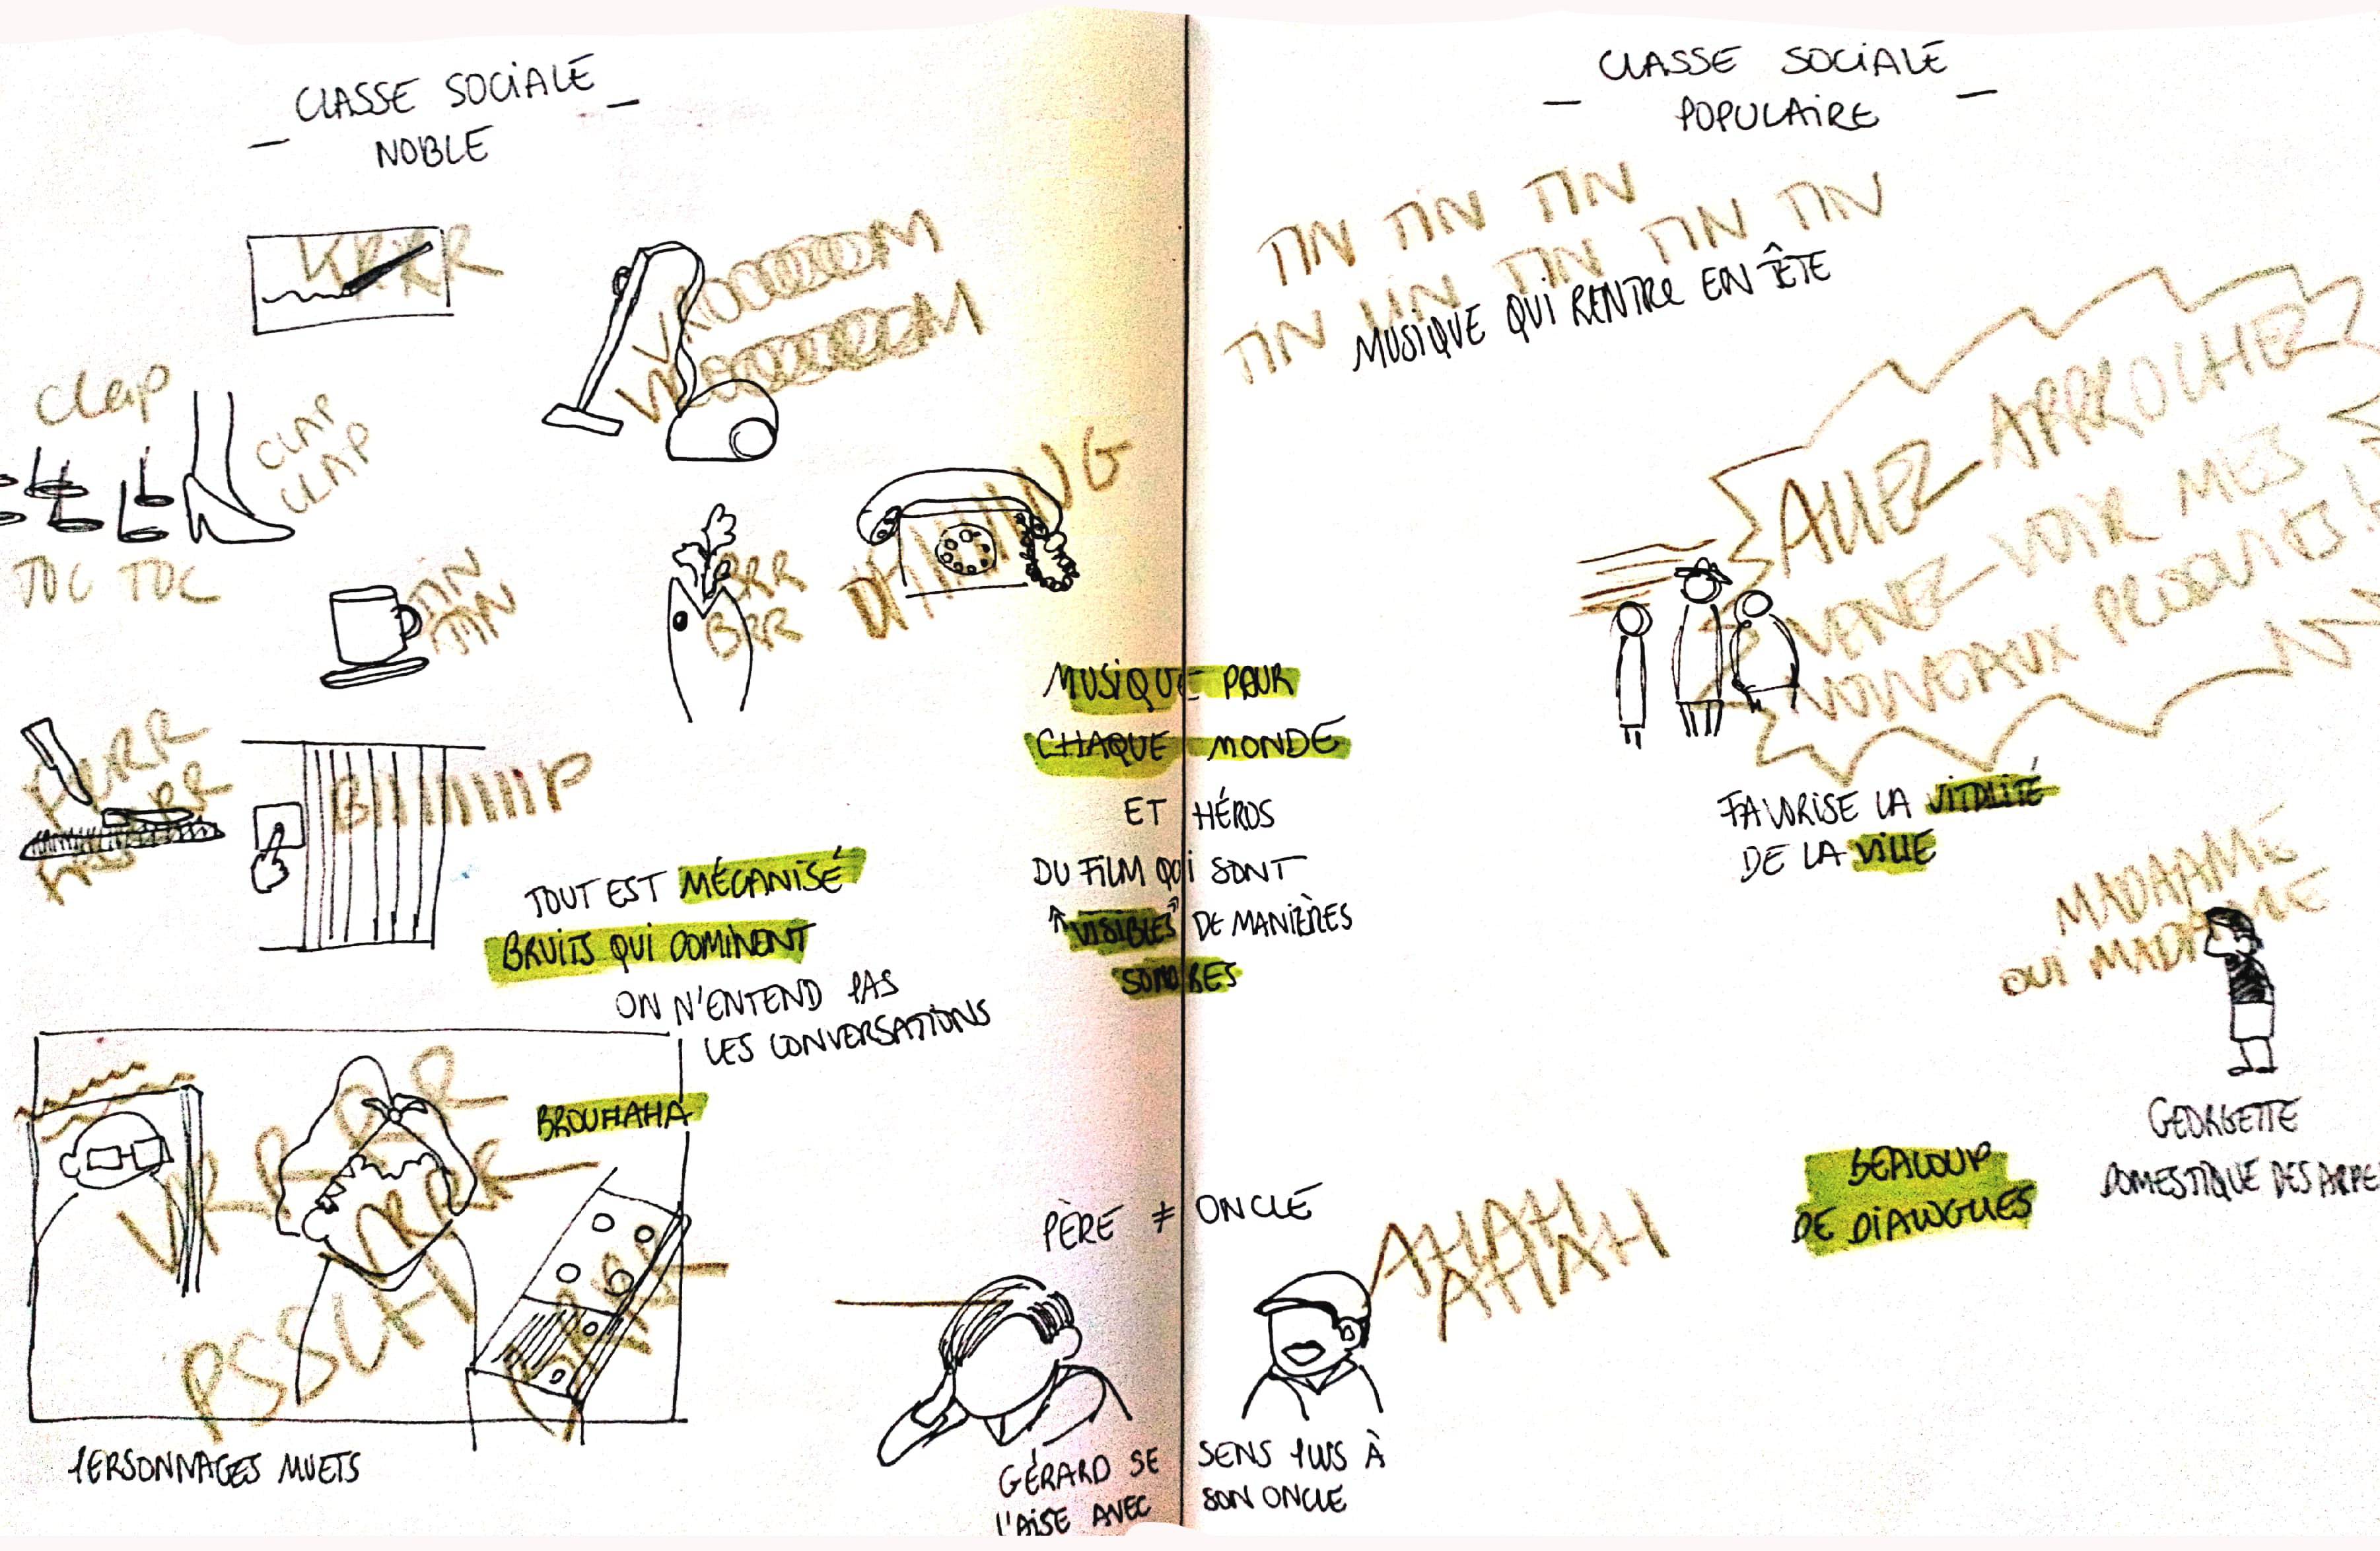 CLASSE SOCIALE
NOBLE
KRRR
VROOOOOOM
VROOOOOOM
Clap
CLAP
CLAP
TOC TOC
TIN
TIN
BRR
BRR
DRIIIING
BIIIIIIIP
TOUT EST MÉCANISÉ
BRUITS QUI DOMINENT
ON N'ENTEND PAS
LES CONVERSATIONS
BROUHAHA
VR-R-R-R
PSSCH
PERSONNAGES MUETS
MUSIQUE POUR
CHAQUE MONDE
ET HÉROS
DU FILM QUI SONT
"VISIBLES" DE MANIÈRES
SONORES
PÈRE ≠ ONCLE
GÉRARD SE SENS PLUS À
L'AISE AVEC SON ONCLE
CLASSE SOCIALE
POPULAIRE
TIN TIN TIN
TIN TIN TIN TIN TIN
MUSIQUE QUI RENTRE EN TÊTE
ALLEZ APPROCHEZ
VENEZ VOIR MES
NOUVEAUX PRODUITS !
FAVORISE LA VITALITÉ
DE LA VILLE
MADAAME
OUI MADAME
GEORGETTE
DOMESTIQUE DES ARPE
BEAUCOUP
DE DIALOGUES
AHAH
AHAH